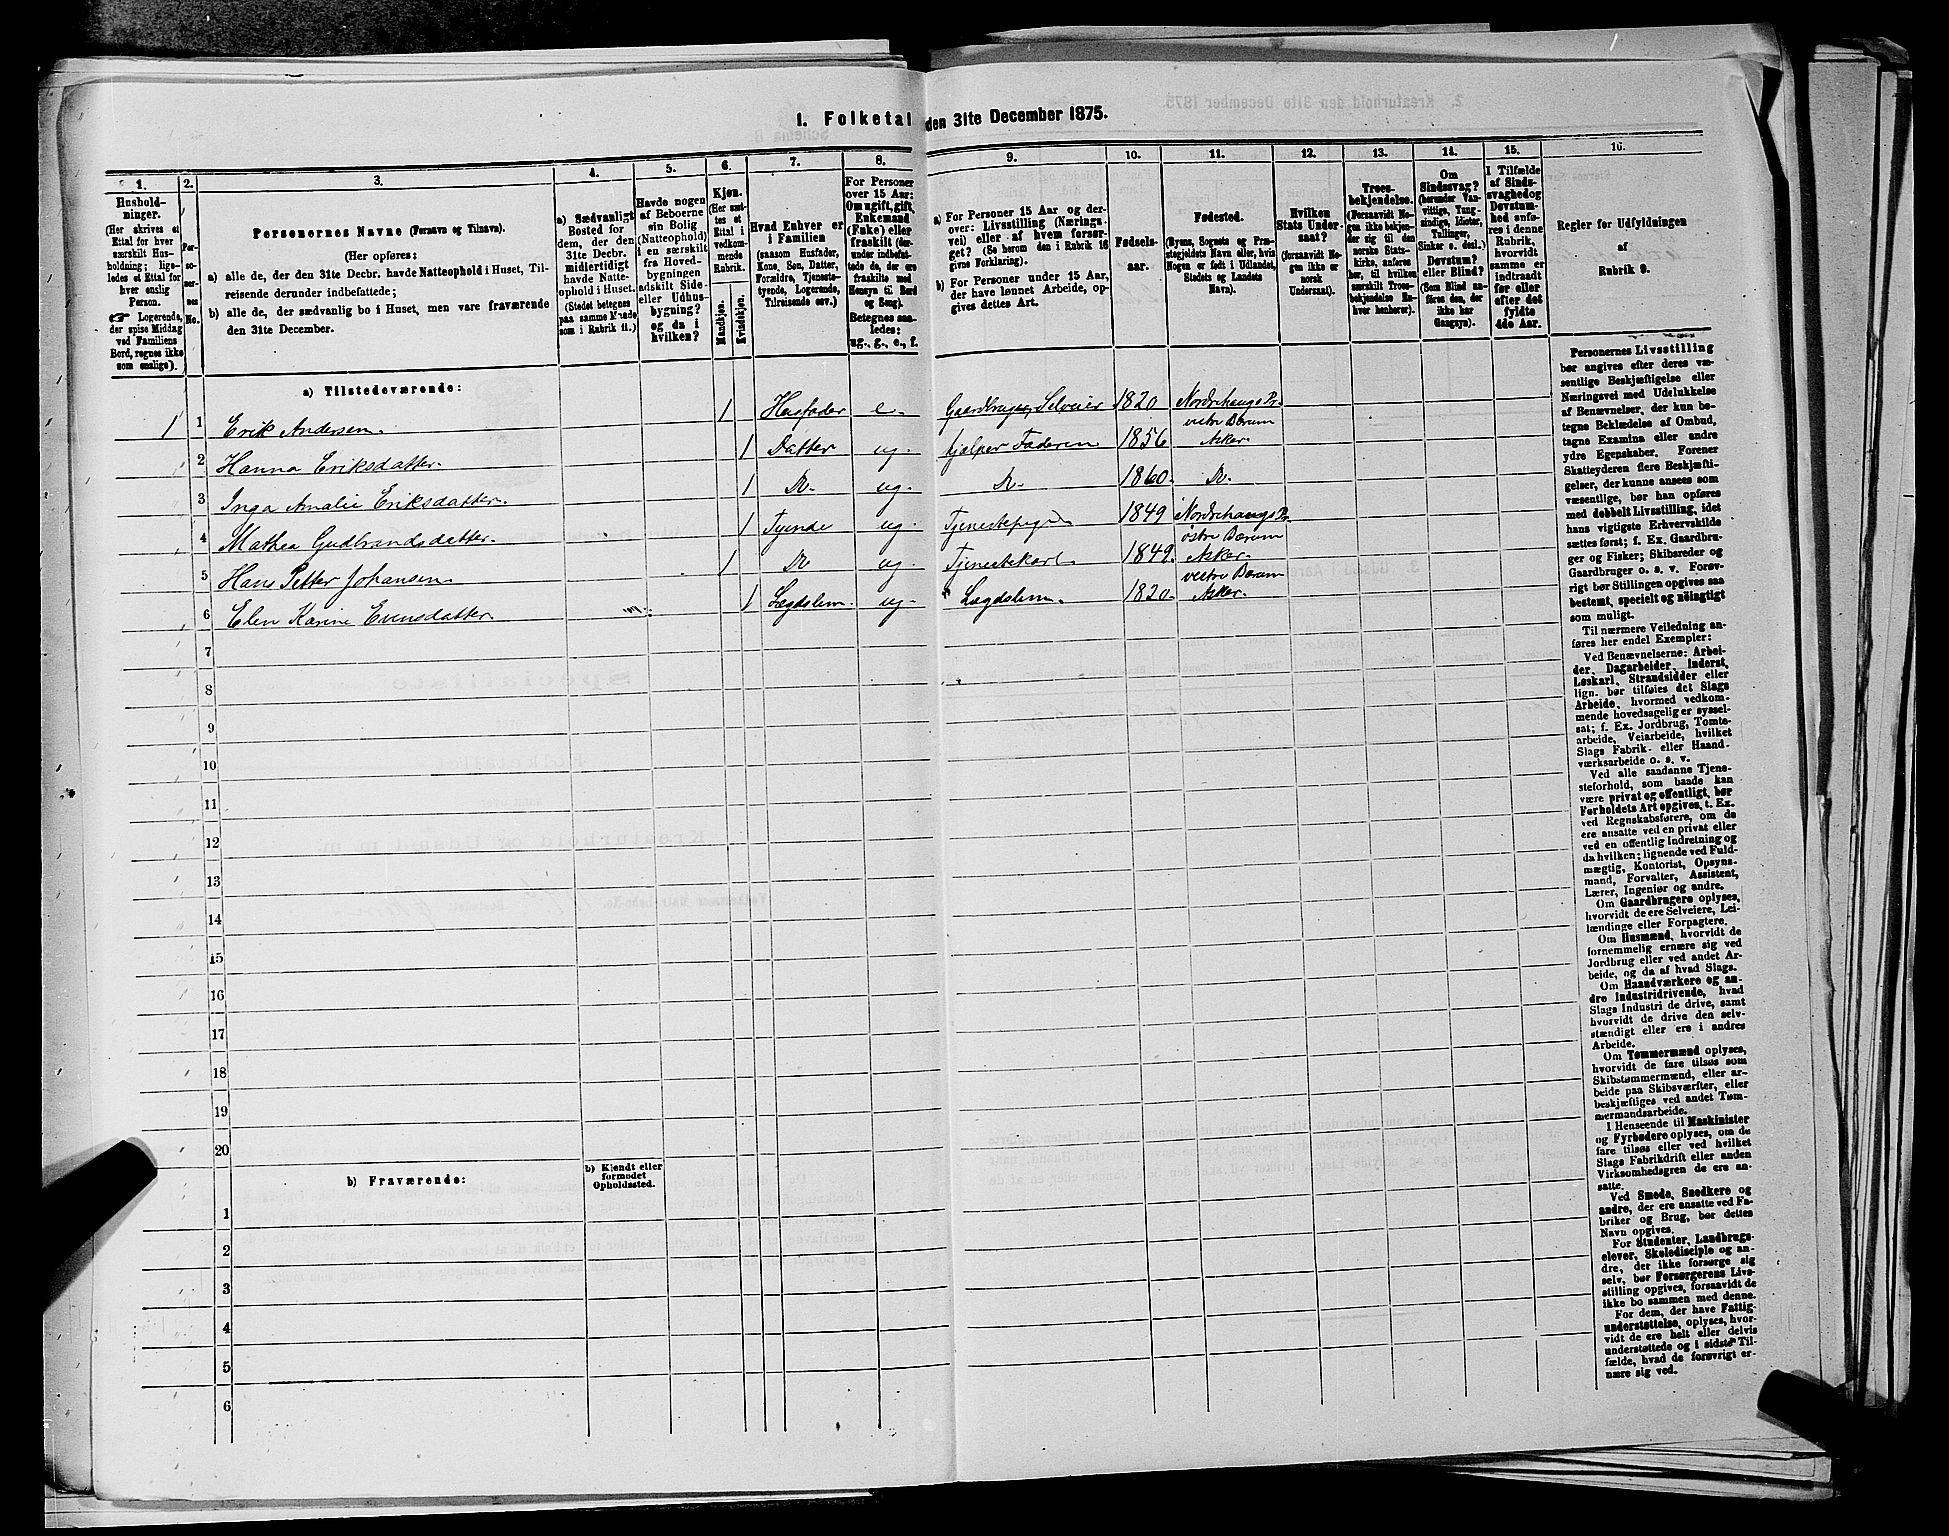 1. Folketal den 31te December 1875.
1.
2.
3.
4.
5.
6.
7.
8.
9.
10.
11.
12.
13.
14.
15.
16.
Hushold-
ninger.
(Her skrives et
Ettal for hver
særskilt Hus-
holdning; lige-
ledes et Ettal for
hver enslig
Person.
☞ Logerende,
der spise Middag
ved Familiens
Bord, regnes ikke
som enslige).
Per-
so-
ner-
nes
No.
Personernes Navne (Fornavn og Tilnavn).
(Her opføres:
a) alle de, der den 31te Decbr. havde Natteophold i Huset, Til-
reisende derunder indbefattede;
b) alle de, der sædvanlig bo i Huset, men vare fraværende
den 31te December.
a) Sædvanligt
Bosted for
dem, der den
31te Decbr.
midlertidigt
havde Natte-
ophold i Huset.
(Stedet betegnes
paa samme Maade
som i Rubrik 11.)
Havde nogen
af Beboerne
sin Bolig
(Natteophold)
i en særskilt
fra Hoved-
bygningen
adskilt Side-
eller Udhus-
bygning?
og da i
hvilken?
Kjøn.
(Her sæt-
tes et
Ettal i
vedkom-
mende
Rubrik.
Mandkjøn.
Kvindekjøn.
Hvad Enhver er
i Familien
(saasom Husfader,
Kone, Søn, Datter,
Forældre, Tjeneste-
tyende, Logerende,
Tilreisende osv.)
For Personer
over 15 Aar:
Om ugift, gift,
Enkemand
(Enke) eller
fraskilt (der-
under indbefat-
tede de, der ere
fraskilte med
Hensyn til Bord
og Seng).
Betegnes saa-
ledes:
ug., g., e., f.
a) For Personer 15 Aar og der-
over: Livsstilling (Nærings-
vei) eller af hvem forsør-
get? (Se herom den i Rubrik 16
givne Forklaring).
b) For Personer under 15 Aar,
der have lønnet Arbeide, op-
gives dettes Art.
Fødsels-
aar.
Fødested.
(Byens, Sognets og Præ-
stegjeldets Navn eller, hvis
Nogen er født i Udlandet,
Stedets og Landets
Navn).
Hvilken
Stats Under-
saat?
(forsaavidt No-
gen ikke er
norsk
Undersaat).
Troes-
bekjendelse.
(Forsaavidt No-
gen ikke bekjen-
der sig til den
norske Stats-
kirke, anføres
her, til hvilken
særskilt Troes-
bekjendelse En-
hver henhører).
Om
Sindssvag?
(herunder Van-
vittige, Tung-
sindige, Idioter,
Tullinger,
Sinker o. desl.)
Døvstum?
eller Blind?
(Som Blind an-
føres den, der
ikke har
Gangsyn).
I Tilfælde
af Sinds-
svaghed og
Døvstum-
hed anfø-
res i denne
Rubrik,
hvorvidt
samme er
indtraadt
før eller
efter det
fyldte
4de Aar.
Regler for Udfyldningen
af
Rubrik 9.
a) Tilstedeværende:
1 1 Erik Andersen. 1 Husfader e. Gaardbruger, Selveier 1820 Nordrehougs Pr.
2 Hanna Eriksdatter. 1 Datter ug. hjælper Faderen 1856 vestre Bærum Asker.
3 Inga Amalie Eriksdatter. 1 Do. ug. Do. 1860. Do.
4 Mathea Gudbrandsdatter. 1 Tyende ug. Tjenestepige 1849 Nordrehougs Pr.
5 Hans Petter Johansen. 1 Do ug. Tjenestekarl. 1849. østre Bærum Asker.
6 Elen Karine Evensdatter. 1 Lægdslem. ug. Lægdslem. 1820. vestre Bærum Asker.
7
8
9
10
11
12
13
14
15
16
17
18
19
20
b) Fraværende:
b) Kjendt eller
formodet
Opholdssted.
1
2
3
4
5
6
Personernes Livsstilling
bør angives efter deres væ-
sentlige Beskjæftigelse eller
Næringsvei med Udelukkelse
af Benævnelser, der kun be-
tegne Beklædelse af Ombud,
tagne Examina eller andre
ydre Egenskaber. Forener
Skatteyderen flere Beskjæfti-
gelser, der kunne ansees som
væsentlige, bør han opføres
med dobbelt Livsstilling, idet
hans vigtigste Erhvervskilde
sættes først; f. Ex. Gaardbru-
ger og Fisker; Skibsreder og
Gaardbruger o. s. v. Forøv-
rigt bør Stillingen opgives saa
bestemt, specielt og nøiagtigt
som muligt.
Til nærmere Veiledning an-
føres her endel Exempler:
Ved Benævnelserne: Arbei-
der, Dagarbeider, Inderst,
Løskarl, Strandsidder eller
lign. bør tilføies det Slags
Arbeide, hvormed vedkom-
mende hovedsagelig er syssel-
sat; f. Ex. Jordbrug, Tomte-
arbeide, Veiarbeide, hvilket
Slags Fabrik- eller Haand-
værksarbeide o. s. v.
Ved alle saadanne Tjene-
steforhold, som baade kan
være privat og offentligt, bør
Forholdets Art opgives, t. Ex.
ved Regnskabsførere, om de
ere ansatte ved en privat eller
ved en offentlig Indretning og
da hvilken; lignende ved Fuld-
mægtig, Kontorist, Opsyns-
mand, Forvalter, Assistent,
Lærer, Ingeniør og andre.
Om Gaardbrugere oplyses,
hvorvidt de ere Selveiere, Lei-
lændinge eller Forpagtere.
Om Husmænd, hvorvidt de
fornemmelig ernære sig ved
Jordbrug eller ved andet Ar-
beide, og da af hvad Slags.
Om Haandværkere og an-
dre Industridrivende, hvad
Slags Industri de drive, samt
hvorvidt de drive den selv-
stændigt eller ere i andres
Arbeide.
Om Tømmermænd oplyses,
hvorvidt de fare tilsøs som
Skibstømmermænd, eller ar-
beide paa Skibsværfter, eller
beskjæftiges ved andet Tøm-
mermandsarbeide.
I Henseende til Maskinister
og Fyrbødere oplyses, om de
fare tilsøs eller ved hvilket
Slags Fabrikdrift eller anden
Virksomhedsgren de ere an-
satte.
Ved Smede, Snedkere og
andre, der ere ansatte ved Fa-
briker og Brug, bør dettes
Navn opgives.
For Studenter, Landbrugs-
elever, Skoledisciple og an-
dre, der ikke forsørge sig
selv, bør Forsørgerens Livs-
stilling opgives, forsaavidt de
ikke bo sammen med denne.
For dem, der have Fattig-
understøttelse, oplyses, hvor-
vidt de ere helt eller delvis
understøttede og i sidste Til-
fælde, hvad de forøvrigt er-
nære sig ved.